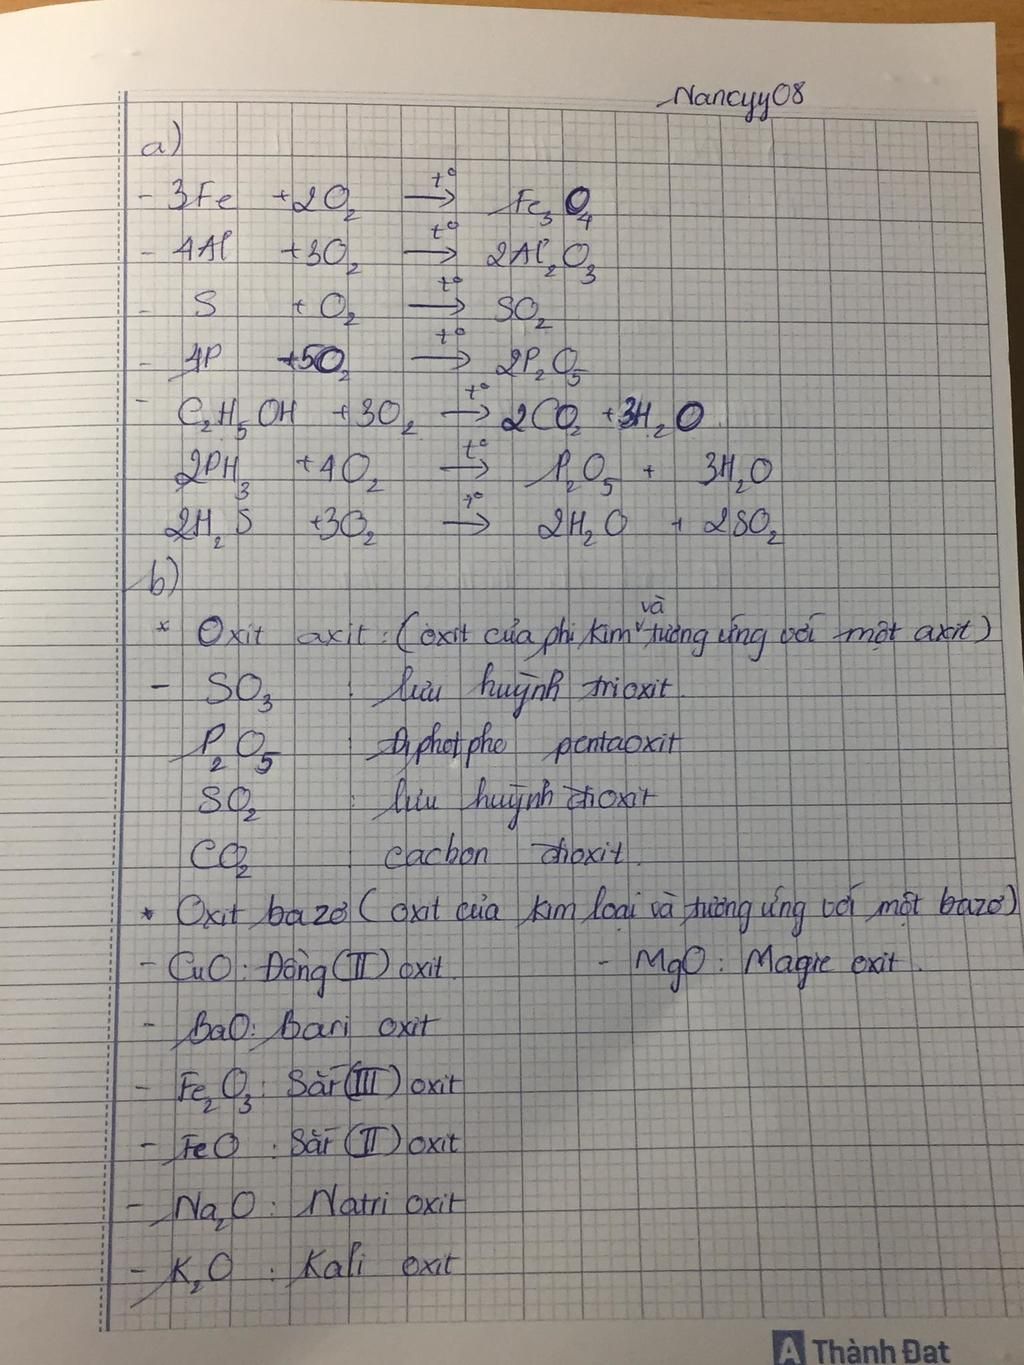 Nancyy08
a)
- 3Fe + 2O₂ t°→ Fe₃O₄
- 4Al + 3O₂ t°→ 2Al₂O₃
- S + O₂ t°→ SO₂
- 4P + 5O₂ t°→ 2P₂O₅
- C₂H₅OH + 3O₂ t°→ 2CO₂ + 3H₂O
2PH₃ + 4O₂ t°→ P₂O₅ + 3H₂O
2H₂S + 3O₂ t°→ 2H₂O + 2SO₂
b)
* Oxit axit : (oxit của phi kim và tương ứng với một axit)
- SO₃ : lưu huỳnh trioxit.
P₂O₅ : điphotpho pentaoxit
SO₂ : lưu huỳnh đioxit
CO₂ : cacbon đioxit.
* Oxit bazơ (oxit của kim loại và tương ứng với một bazơ)
- CuO : Đồng (II) oxit. - MgO : Magie oxit.
- BaO : Bari oxit
- Fe₂O₃ : Sắt (III) oxit
- FeO : Sắt (II) oxit
- Na₂O : Natri oxit
- K₂O : Kali oxit
A Thành Đạt